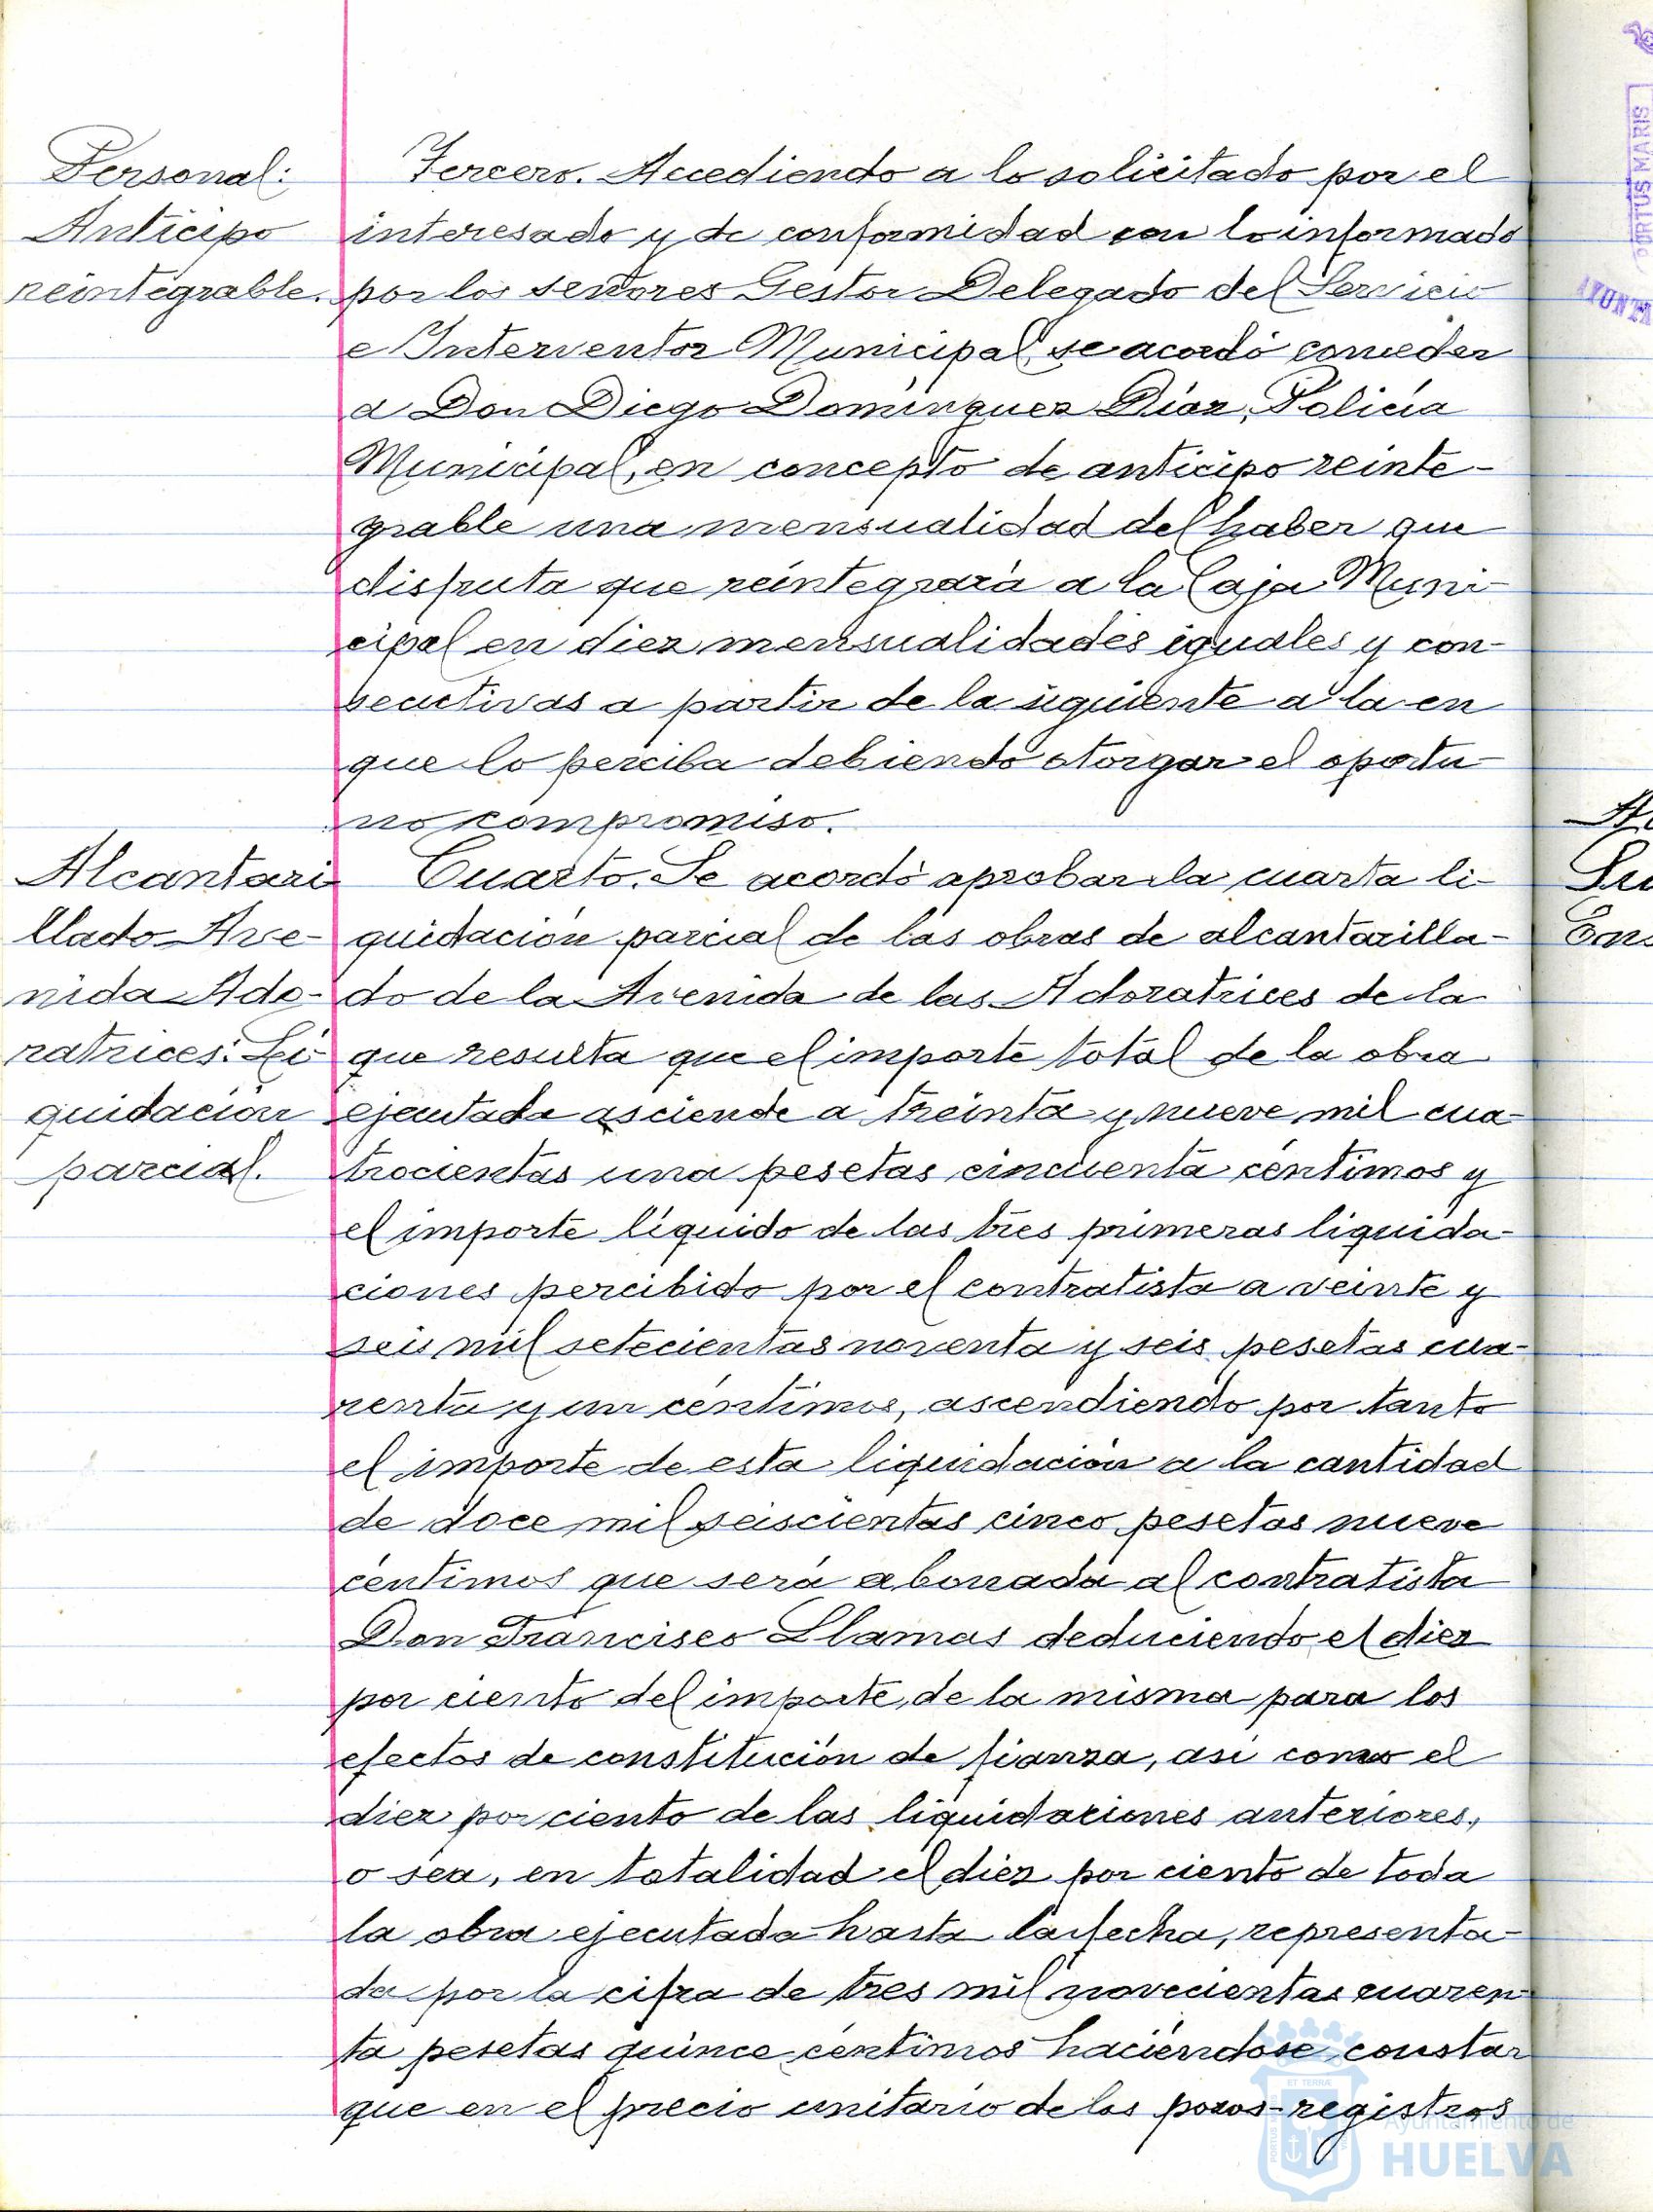 Personal:
Anticipo
reintegrable.
Tercero. Accediendo a lo solicitado por el
interesado y de conformidad con lo informado
por los señores Gestor Delegado del Servicio
e Interventor Municipal, se acordó conceder
a Don Diego Domínguez Díaz, Policía
Municipal, en concepto de anticipo reinte-
grable una mensualidad del haber que
disfruta que reintegrará a la Caja Muni-
cipal en diez mensualidades iguales y con-
secutivas a partir de la siguiente a la en
que lo perciba debiendo otorgar el oportu-
no compromiso.
Alcantari
llado Ave-
nida Ado-
ratrices: Li-
quidación
parcial.
Cuarto. Se acordó aprobar la cuarta li-
quidación parcial de las obras de alcantarilla-
do de la Avenida de las Adoratrices de la
que resulta que el importe total de la obra
ejecutada asciende a treinta y nueve mil cua-
trocientas una pesetas cincuenta céntimos y
el importe líquido de las tres primeras liquida-
ciones percibido por el contratista a veinte y
seis mil setecientas noventa y seis pesetas cua-
renta y un céntimos, ascendiendo por tanto
el importe de esta liquidación a la cantidad
de doce mil seiscientas cinco pesetas nueve
céntimos que será abonada al contratista
Don Francisco Llamas deduciendo el diez
por ciento del importe de la misma para los
efectos de constitución de fianza, así como el
diez por ciento de las liquidaciones anteriores,
o sea, en totalidad el diez por ciento de toda
la obra ejecutada hasta la fecha, representa-
da por la cifra de tres mil novecientas cuaren-
ta pesetas quince céntimos haciéndose constar
que en el precio unitario de los pozos-registros
PORTUS MARIS
Ayuntamiento de
HUELVA